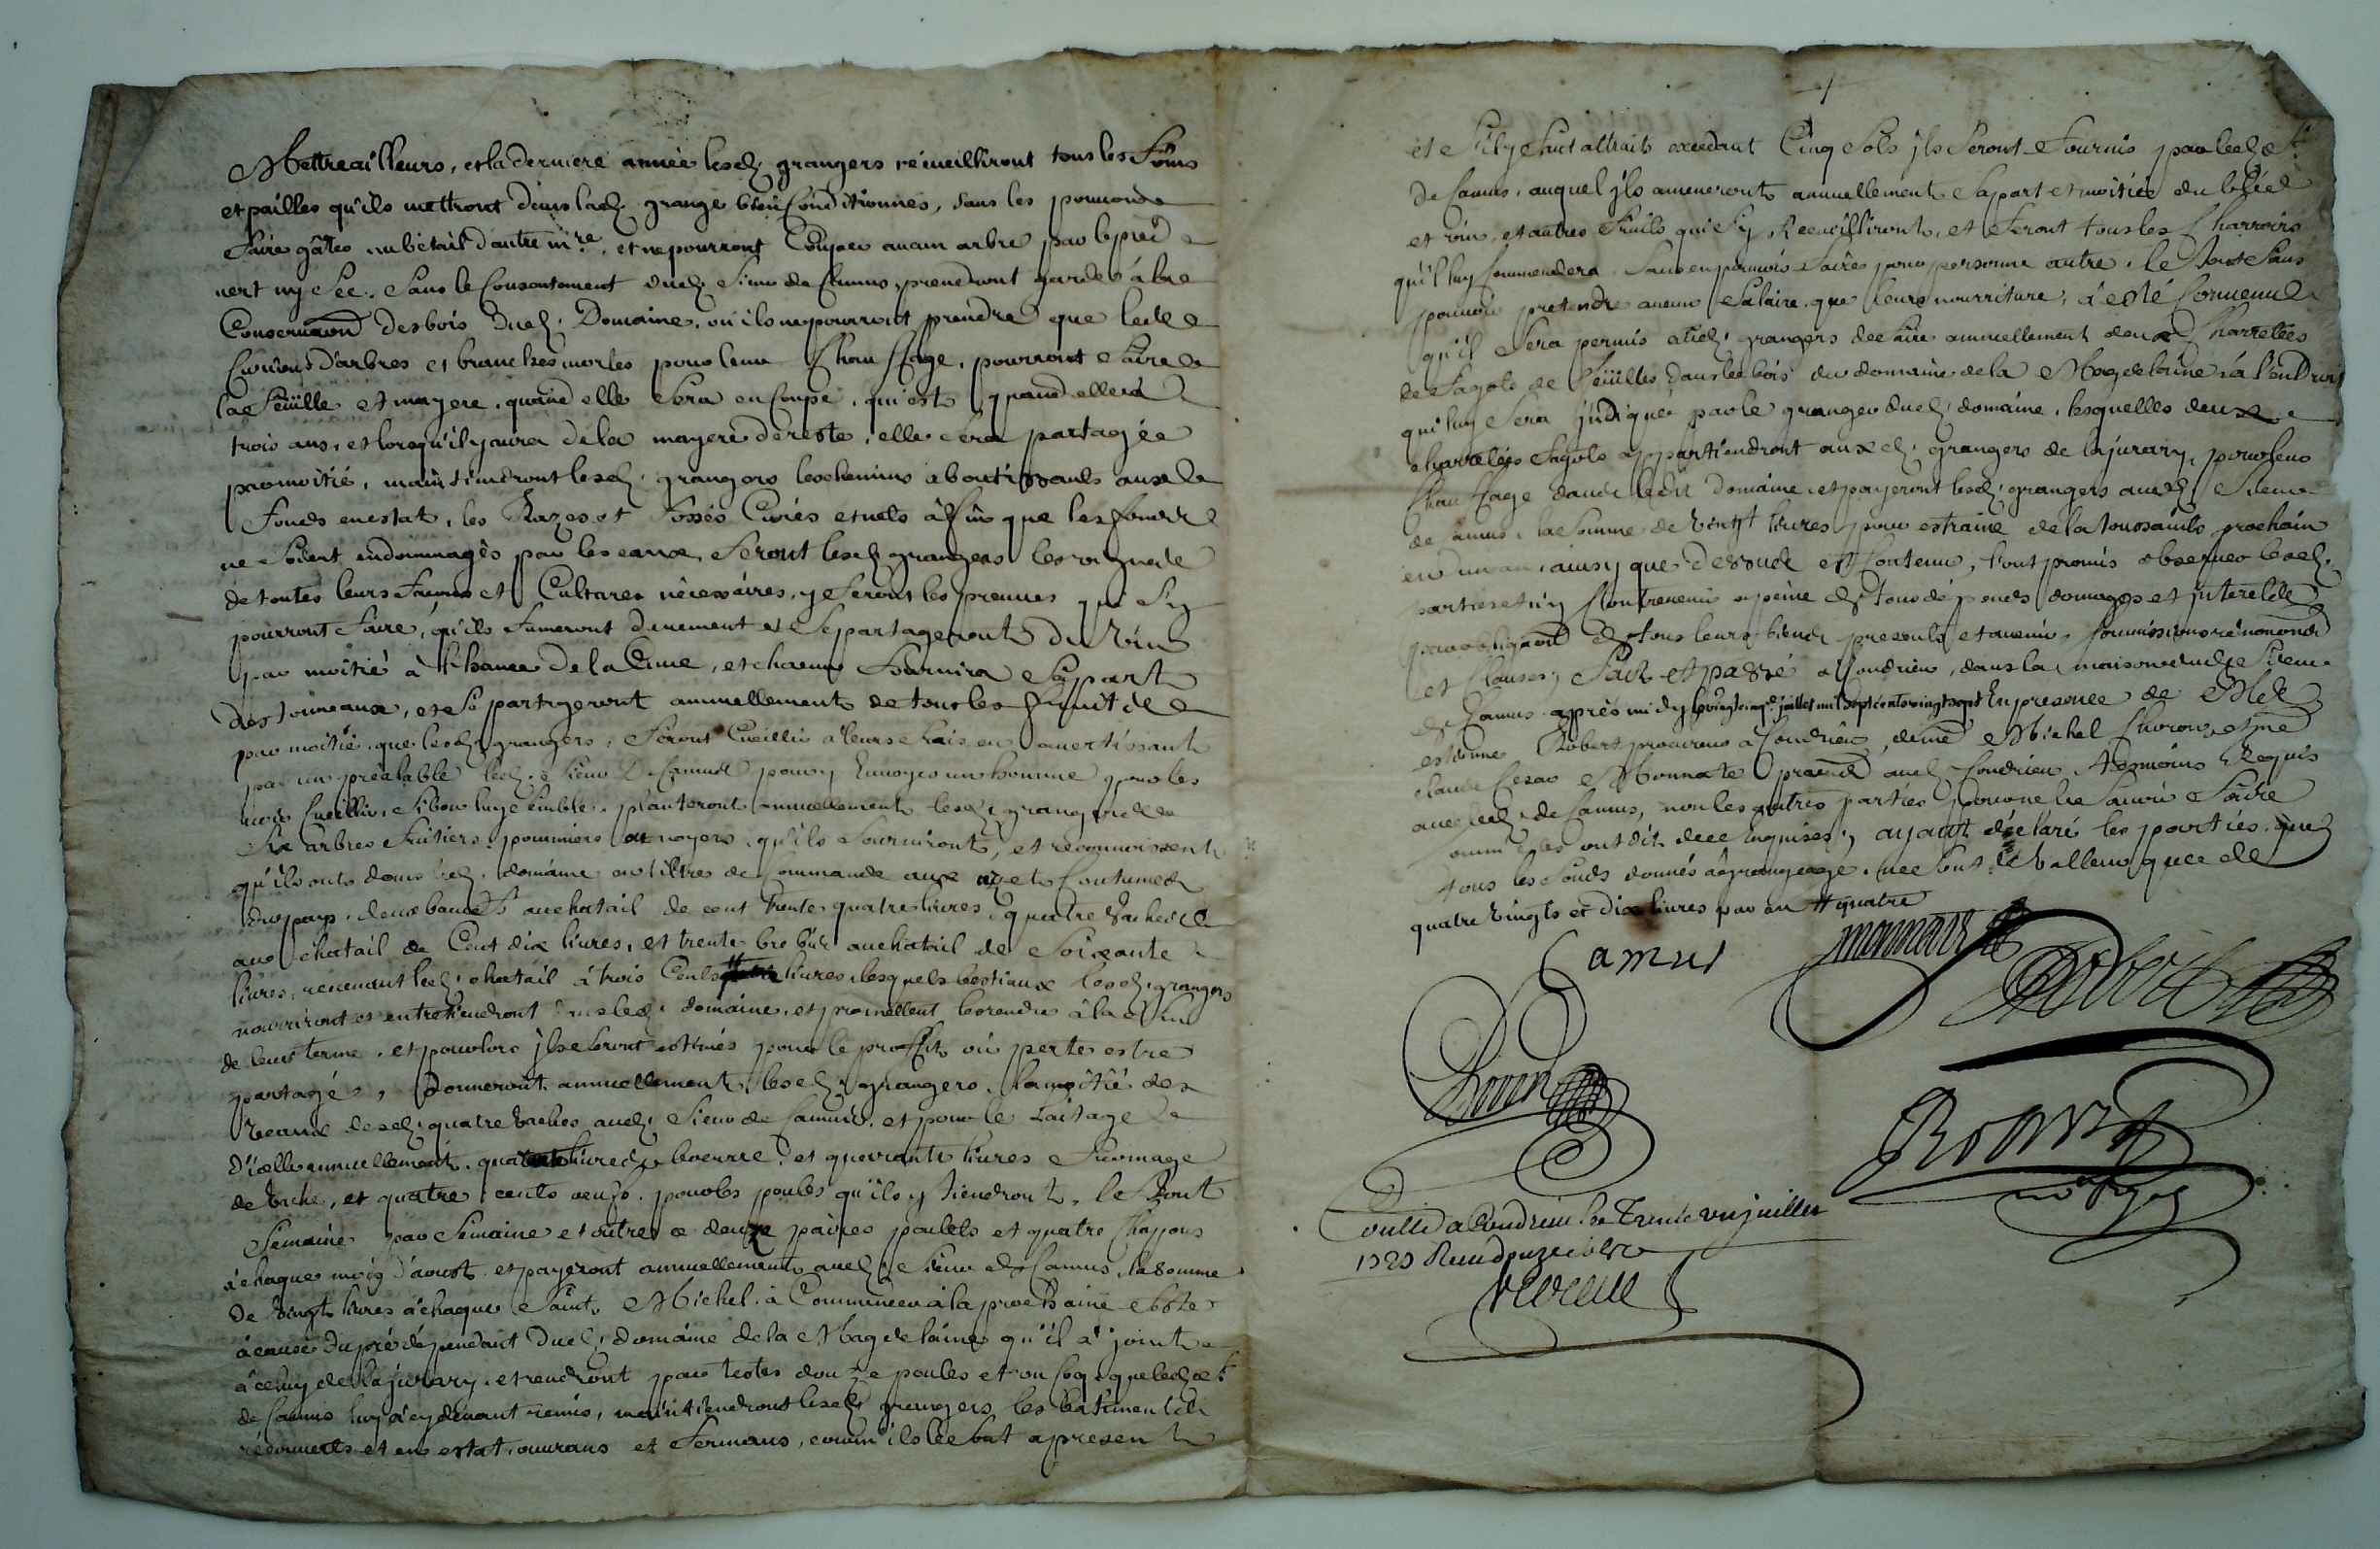 Mettre ailleurs, et la derniere année lesd. grangers récueilliront tous les foins
et pailles qu'ils mettront dans lad. grange bien Conditionnés, sans les pouvoir
faire gâter au bétail d'autre m.re, et ne pourront Couper aucun arbre par le pied
vert ny sec, sans le Consentement dud. Sieur de Camus, prendront garde à la
Conservaon des bois dud. Domaine, où ils ne pourront prendre que
d'arbres et branches mortes pour leur Chauffage, pourront faire
la feüille et mayere, quand elle sera en Coupe, qui est quand elle a
trois ans, et lorsqu'il y aura de la mayere de reste, elle sera partagée
par moitié, maintiendront lesd. grangers les chemins aboutissants aux
fonds en estat, les Razes et fossés Curés et nets à fin que les fonds
ne soient endommagés par les eaux, feront lesd. grangers les vignes de
de toutes leurs façons et Cultures nécessaires, y feront les preuves qui s'y
pourront faire, qu'ils fumeront düement et se partageront du Vin
par moitié à l'hance de la Cuve, et chacun fournira sa part
des tonneaux, et se partageront annuellement de tous les fruits
par moitié, que lesd. grangers feront Cueillir à leurs frais en avertissant
par un préalable led. Sieur De Camus pour y Envoyer un homme pour les
voir Cueillir, si bon luy semble, planteront annuellement lesd. grangers
Six arbres fruitiers, pommiers ou noyers, qu'ils fourniront, et reconnoissent
qu'ils ont dans led. domaine en tiltres de Commande aux us et Coutumes
du pays, deux bœufs au chatail de cent trente quatre livres, quatre Vaches
au chatail de Cent dix livres, et trente brebis au chatail de Soixante
livres, revenant led. chatail à trois Cents livres, lesquels bestiaux lesd. grangers
nourriront et entretiendront dans led. domaine, et promettent les rendre à la fin
de leur terme, et pour lors ils seront estimés pour le proffit où perte estre
partagé, Donneront annuellement lesd. grangers, la moitié des
Veaux desd. quatre Vaches aud. Sieur de Camus, et pour le Laitage
D'icelles annuellement, livres de beurre, et quarante livres fromage
de Vache, et quatre cents oeufs, pour les poules qu'ils y tiendront, le tout
Semaine par Semaine et outre ce deux paires poulets et quatre Chapons
à chaque mois d'aoust, et payeront annuellement aud. Sieur de Camus, la somme
de Vingt livres à chaque Saint Michel, à Commencer à la prochaine
à cause du pré dépendant dud. domaine de la Magdelaine qu'il a joint
à celuy de la jurary, et rendront pour testes douze poules et un Coq que led. Sr
de Camus luy a cy devant remis, maintiendront lesd. grangers les bâtiments
récouverts et en estat, ouvrans et fermans, comm'ils le sont apresent
et s'il y faut attraits excedant Cinq sols ils seront fournis par led. Sr
De Camus, auquel ils ameneront annuellement sa part et moitiée du bled
et vin, et autres fruits qui s'y Recueilliront, et feront tous les Charrois
qu'il luy Commendera, Sans en pouvoir faire pour personne autre, le tout Sans
pouvoir pretendre aucun Salaire, que leurs nourriture, a esté Convenu
qu'il sera permis ausd. grangers de faire annuellement deux Charretées
de fagots de feüilles dans les bois du domaine de la Magdelaine, à l'endroit
qui luy sera jndiqué par le granger dud. domaine, lesquelles deux
charretées fagots appartiendront auxd. grangers de la jurary, pour leur
Chauffage dans ledit Domaine, et payeront lesd. grangers aud. Sieur
de Camus, la Somme de Vingt livres pour estraine de la toussaints prochain
en un an, ainsy que dessus est Contenu, l'ont promis observer lesd.
parties et n'y Contrevenir a peine de tous dépends domages et jnterests
par obligaon de tous leurs biens presents et avenir, soumissions rénonons
et Clauses, fait et passé a Condrieu, dans la maison dud. Sieur
De Camus après midy le vingt cinqe juillet mil sept cents vingt sept En presence de Me
estienne Robert procureur à Condrieu, de me Michel Chovon, et me
claude Cesar Monnate praticien aud. Condrieu, temoins Requis
avec led. de Camus, non les autres parties pour ne le sçavoir faire
comm'elles ont dit de ce enquises, ayant déclaré les parties que
tous les fonds donnés à grangeage, ne sont de valleur que de
quatre vingts et dix livres par an
Camus
Robert
Chovon
Controllé a Condrieu le Trente un juillet